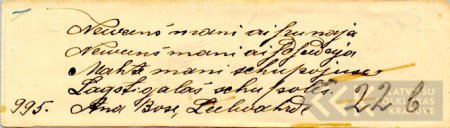 Neweens mani aiskuneja
Neweens mani
Mahte mani schupojuse
Lagstigalas schupoli
995. Ana Bose, Leelwahrde 226
LATVIEŠU
FOLKLORAS
KRĀTUVE